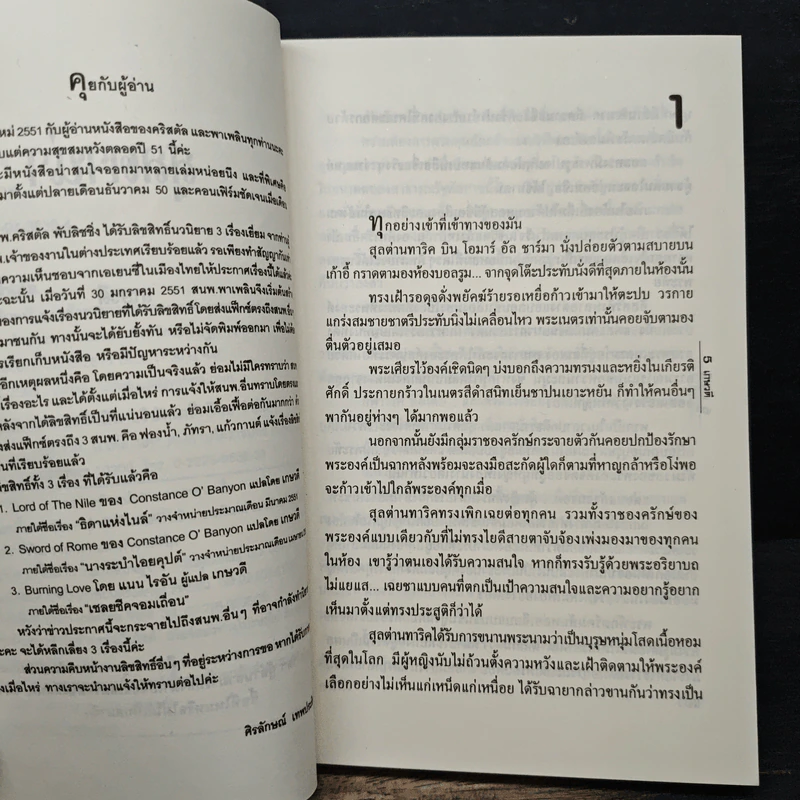 คุยกับผู้อ่าน
ใหม่ 2551 กับผู้อ่านหนังสือของคริสตัล และพาเพลินทุกท่านนะคะ
แต่ความสุขสมหวังตลอดปี 51 นี้ค่ะ
มีหนังสือน่าสนใจออกมาหลายเล่มหน่อยนึง และที่พิเศษคือ
มาตั้งแต่ปลายเดือนธันวาคม 50 และคอนเฟิร์มชัดเจนเมื่อเดือน
พ.คริสตัล พับลิชชิ่ง ได้รับลิขสิทธิ์นวนิยาย 3 เรื่องเยี่ยม จาก
พ.เจ้าของงานในต่างประเทศเรียบร้อยแล้ว รอเพียงทำสัญญากัน
ความเห็นชอบจากเอเยนซี่ในเมืองไทยให้ประกาศเรื่องนี้ได้แล้ว
ฉะนั้น เมื่อวันที่ 30 มกราคม 2551 สนพ.พาเพลินจึงเริ่มต้น
ของการแจ้งเรื่องนวนิยายที่ได้รับลิขสิทธิ์โดยส่งแฟ็กซ์ตรงถึง
มาชนกัน ทางนั้นจะได้ยับยั้งทัน หรือไม่จัดพิมพ์ออกมา เพื่อไม่
การเรียกเก็บหนังสือ หรือมีปัญหาระหว่างกัน
อีกเหตุผลหนึ่งคือ โดยความเป็นจริงแล้ว ย่อมไม่มีใครทราบว่า
เรื่องอะไร และได้ตั้งแต่เมื่อไหร่ การแจ้งให้สนพ.อื่นทราบโดยตรง
หลังจากได้ลิขสิทธิ์เป็นที่แน่นอนแล้ว ย่อมเอื้อเฟื้อต่อกันมากกว่า
ส่งแฟ็กซ์ตรงถึง 3 สนพ. คือ ฟองน้ำ, ภัทรา, แก้วกานต์ แจ้งเรื่อง
ที่เรียบร้อยแล้ว
สิทธิ์ทั้ง 3 เรื่อง ที่ได้รับแล้วคือ
1. Lord of The Nile ของ Constance O' Banyon แปลโดย เกษวดี
ภายใต้ชื่อเรื่อง "ธิดาแห่งไนล์" วางจำหน่ายประมาณเดือน มีนาคม 2551
2. Sword of Rome ของ Constance O' Banyon แปลโดย เกษวดี
ภายใต้ชื่อเรื่อง "นางระบำไอยคุปต์" วางจำหน่ายประมาณเดือน
3. Burning Love โดย แนน ไรอัน ผู้แปล เกษวดี
ภายใต้ชื่อเรื่อง "เชลยชีคจอมเถื่อน"
หวังว่าข่าวประกาศนี้จะกระจายไปถึงสนพ.อื่นๆ ที่อาจกำลัง
คะ จะได้หลีกเลี่ยง 3 เรื่องนี้ค่ะ
ส่วนความคืบหน้างานลิขสิทธิ์อื่นๆ ที่อยู่ระหว่างการขอ หากได้รับ
เมื่อไหร่ ทางเราจะนำมาแจ้งให้ทราบต่อไปค่ะ
ศิรลักษณ์
1
ทุกอย่างเข้าที่เข้าทางของมัน
สุลต่านทาริค บิน โอมาร์ อัล ชาร์มา นั่งปล่อยตัวตามสบายบน
เก้าอี้ กราดตามองห้องบอลรูม... จากจุดโต๊ะประทับนั่งดีที่สุดภายในห้องนั้น
ทรงเฝ้ารอดุจดั่งพยัคฆ์ร้ายรอเหยื่อก้าวเข้ามาให้ตะปบ วรกาย
แกร่งสมชายชาตรีประทับนิ่งไม่เคลื่อนไหว พระเนตรเท่านั้นคอยจับตามอง
ตื่นตัวอยู่เสมอ
พระเศียรไว้องค์เชิดนิดๆ บ่งบอกถึงความทรนงและหยิ่งในเกียรติ
ศักดิ์ ประกายกร้าวในเนตรสีดำสนิทเย็นชาปนเยาะหยัน ก็ทำให้คนอื่นๆ
พากันอยู่ห่างๆ ได้มากพอแล้ว
นอกจากนั้นยังมีกลุ่มราชองครักษ์กระจายตัวกันคอยปกป้องรักษา
พระองค์เป็นฉากหลังพร้อมจะลงมือสะกัดผู้ใดก็ตามที่หาญกล้าหรือโง่พอ
จะก้าวเข้าไปใกล้พระองค์ทุกเมื่อ
สุลต่านทาริคทรงเพิกเฉยต่อทุกคน รวมทั้งราชองครักษ์ของ
พระองค์แบบเดียวกับที่ไม่ทรงไยดีสายตาจับจ้องเพ่งมองมาของทุกคน
ในห้อง เขารู้ว่าตนเองได้รับความสนใจ หากก็ทรงรับรู้ด้วยพระอริยาบถ
ไม่แยแส... เฉยชาแบบคนที่ตกเป็นเป้าความสนใจและความอยากรู้อยาก
เห็นมาตั้งแต่ทรงประสูติก็ว่าได้
สุลต่านทาริคได้รับการขนานพระนามว่าเป็นบุรุษหนุ่มโสดเนื้อหอม
ที่สุดในโลก มีผู้หญิงนับไม่ถ้วนตั้งความหวังและเฝ้าติดตามให้พระองค์
เลือกอย่างไม่เห็นแก่เหน็ดแก่เหนื่อย ได้รับฉายากล่าวขานกันว่าทรงเป็น
5